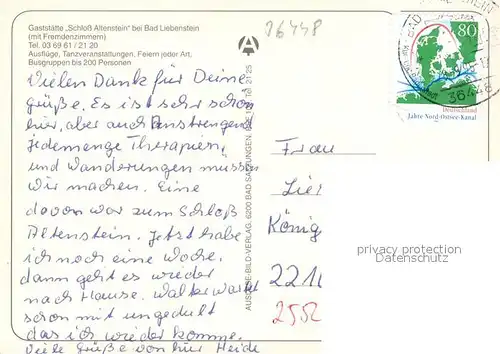 Gaststätte „Schloß Altenstein" bei Bad Liebenstein
(mit Fremdenzimmern)
Tel. 03 69 61 / 21 20
Ausflüge, Tanzveranstaltungen, Feiern jeder Art,
Busgruppen bis 200 Personen
36448
Vielen Dank für Deine
grüße. Es ist sehr schön
hier, aber auch anstrengend
jedemenge Therapien
und Wanderungen müssen
wir machen. Eine
davon war zum Schloß
Altenstein. Jetzt habe
ich noch eine Woche,
dann geht es wieder
nach Hause. Walter wartet
schon mit ungeduld
das ich wieder komme.
Viele Grüße von hier Heide
AUSLESE-BILD-VERLAG, 6200 BAD SALZUNGEN
Tel. 21 25
A
80
BAD
36448
Deutschland
Jahre Nord-Ostsee-Kanal
Frau
Lie
König
221
255
privacy protection
Datenschutz